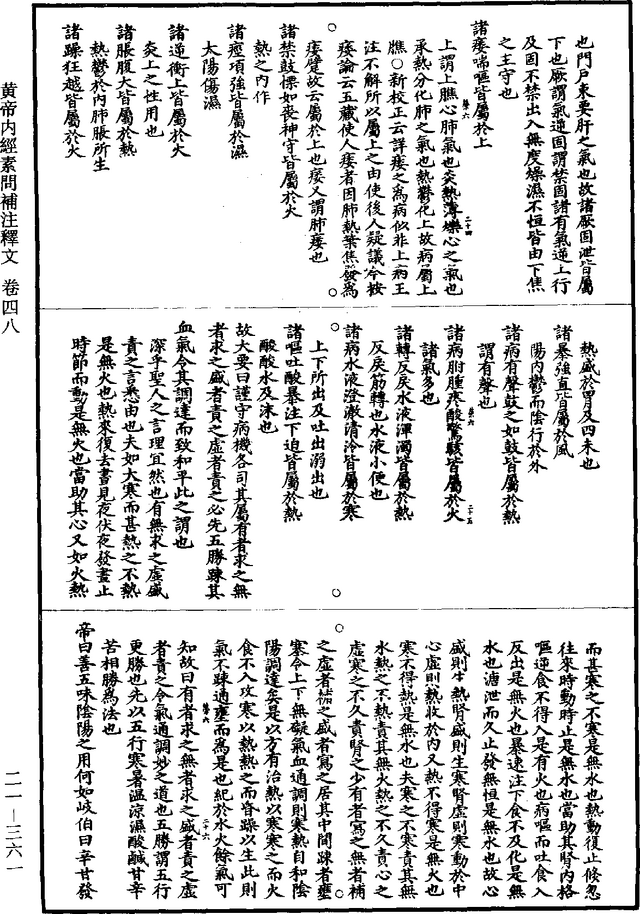 也門戶束要肝之氣也故諸厥固泄皆屬
下也厥謂氣逆固謂禁固諸有氣逆上行
及固不禁出入無度燥濕不恒皆由下焦
之主守也
諸痿喘嘔皆屬於上
上謂上膲心肺氣也炎熱薄爍心之氣也
承熱分化肺之氣也熱鬱化上故病屬上
膲○新校正云詳痿之爲病似非上病王
注不解所以屬上之由使後人疑議今按
痿論云五藏使人痿者因肺熱葉焦發爲
痿躄故云屬於上也痿又謂肺痿也
諸禁鼓慄如喪神守皆屬於火
熱之内作
諸痙項強皆屬於濕
太陽傷濕
諸逆衝上皆屬於火
炎上之性用也
諸脹腹大皆屬於熱
熱鬱於内肺脹所生
諸躁狂越皆屬於火
黃帝内經素問補注釋文 卷四八
熱盛於胃及四末也
諸暴強直皆屬於風
陽内鬱而陰行於外
諸病有聲鼓之如鼓皆屬於熱
謂有聲也
諸病胕腫疼酸驚駭皆屬於火
諸氣多也
諸轉反戾水液渾濁皆屬於熱
反戾筋轉也水液小便也
諸病水液澄澈清冷皆屬於寒
上下所出及吐出溺出也
諸嘔吐酸暴注下迫皆屬於熱
酸酸水及沫也
故大要曰謹守病機各司其屬有者求之無
者求之盛者責之虚者責之必先五勝踈其
血氣令其調達而致和平此之謂也
深乎聖人之言理宜然也有無求之虚盛
責之言悉由也夫如大寒而甚熱之不熱
是無火也熱來復去晝見夜伏夜發晝止
時節而動是無火也當助其心又如火熱
而甚寒之不寒是無水也熱動復止倏忽
往來時動時止是無水也當助其腎内格
嘔逆食不得入是有火也病嘔而吐食入
反出是無火也暴速注下食不及化是無
水也溏泄而久止發無恒是無水也故心
盛則生熱腎盛則生寒腎虚則寒動於中
心虚則熱收於内又熱不得寒是無火也
寒不得熱是無水也夫寒之不寒責其無
水熱之不熱責其無火熱之不久責心之
虚寒之不久責腎之少有者寫之無者補
之虚者補之盛者寫之居其中間踈者壅
塞令上下無礙氣血通調則寒熱自和陰
陽調達矣是以方有治熱以寒寒之而火
食不入攻寒以熱熱之而昏躁以生此則
氣不踈通壅而爲是也紀於水火餘氣可
知故曰有者求之無者求之盛者責之虚
者責之令氣通調妙之道也五勝謂五行
更勝也先以五行寒暑溫涼濕酸鹹甘辛
苦相勝爲法也
帝曰善五味陰陽之用何如岐伯曰辛甘發
二一—三六一